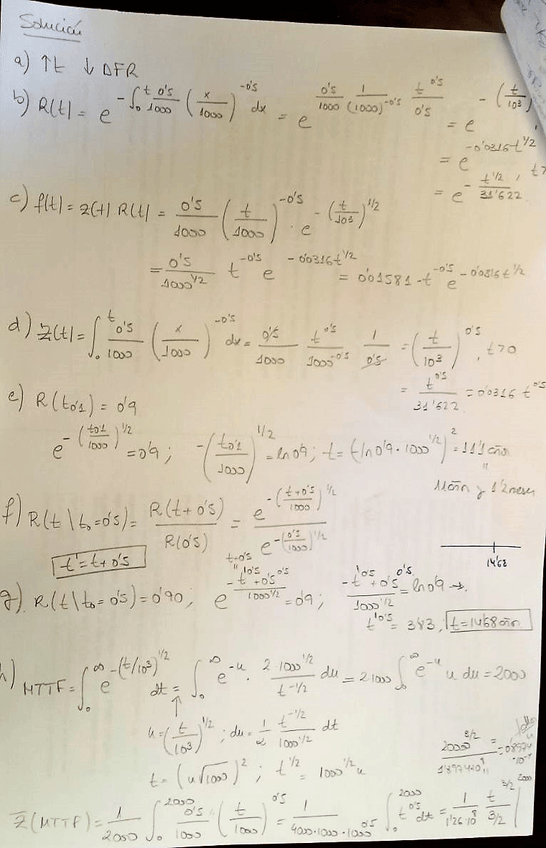 Solución
a) ↑t ↓ DFR
b) R(t) = e^{-∫_0^t 0'5/1000 (x/1000)^{-0'5} dx} = e^{0'5/1000 1/(1000)^{-0'5} t^{0'5}/0'5} = e^{-(t/10³)
= e^{-0'0316 t^{1/2}}, t>
= e^{-t^{1/2}/31'622}
c) f(t) = z(t) R(t) = 0'5/1000 (t/1000)^{-0'5} · e^{-(t/10³)^{1/2}}
= 0'5/1000^{1/2} t^{-0'5} e^{-0'0316 t^{1/2}} = 0'01581 · t^{-0'5} e^{-0'0316 t^{1/2}}
d) Z(t) = ∫_0^t 0'5/1000 (x/1000)^{-0'5} dx = 0'5/1000 t^{0'5}/1000^{-0'5} 1/0'5 = (t/10³)^{0'5}, t>0
= t^{0'5}/31'622 = 0'0316 t^{0'5}
e) R(t_{0'1}) = 0'9
e^{-(t_{0'1}/1000)^{1/2}} = 0'9 ; -(t_{0'1}/1000)^{1/2} = ln 0'9 ; t = (-ln 0'9 · 1000^{1/2})² = 11'1 años
"
11 años y 1'2 meses
f) R(t \ t₀=0'5) = R(t+0'5)/R(0'5) = e^{-((t+0'5)/1000)^{1/2}} / e^{-(0'5/1000)^{1/2}}
t' = t+0'5
14'68
t+0'5
"
g) R(t \ t₀=0'5) = 0'90 ; e^{(-t'^{0'5}+0'5^{0'5})/1000^{1/2}} = 0'9 ; (-t'^{0'5}+0'5^{0'5})/1000^{1/2} = ln 0'9 →
t'^{0'5} = 3'83, t = 14'68 años
h) MTTF = ∫_0^∞ e^{-(t/10³)^{1/2}} dt = ∫_0^∞ e^{-u} · 2·1000^{1/2}/t^{-1/2} du = 2·1000 ∫_0^∞ e^{-u} u du = 2000
↑
u = (t/10³)^{1/2} ; du = 1/2 t^{-1/2}/1000^{1/2} dt
t = (u√1000)² ; t^{1/2} = 1000^{1/2} u
2000^{3/2}/ =
Z̄(MTTF) = 1/2000 ∫_0^{2000} 0'5/1000 (t/1000)^{0'5} = 1/(4000·1000·1000^{0'5}) ∫_0^{2000} t^{0'5} dt = 1/1'26·10⁸ t^{3/2}/3/2 |^{2000}